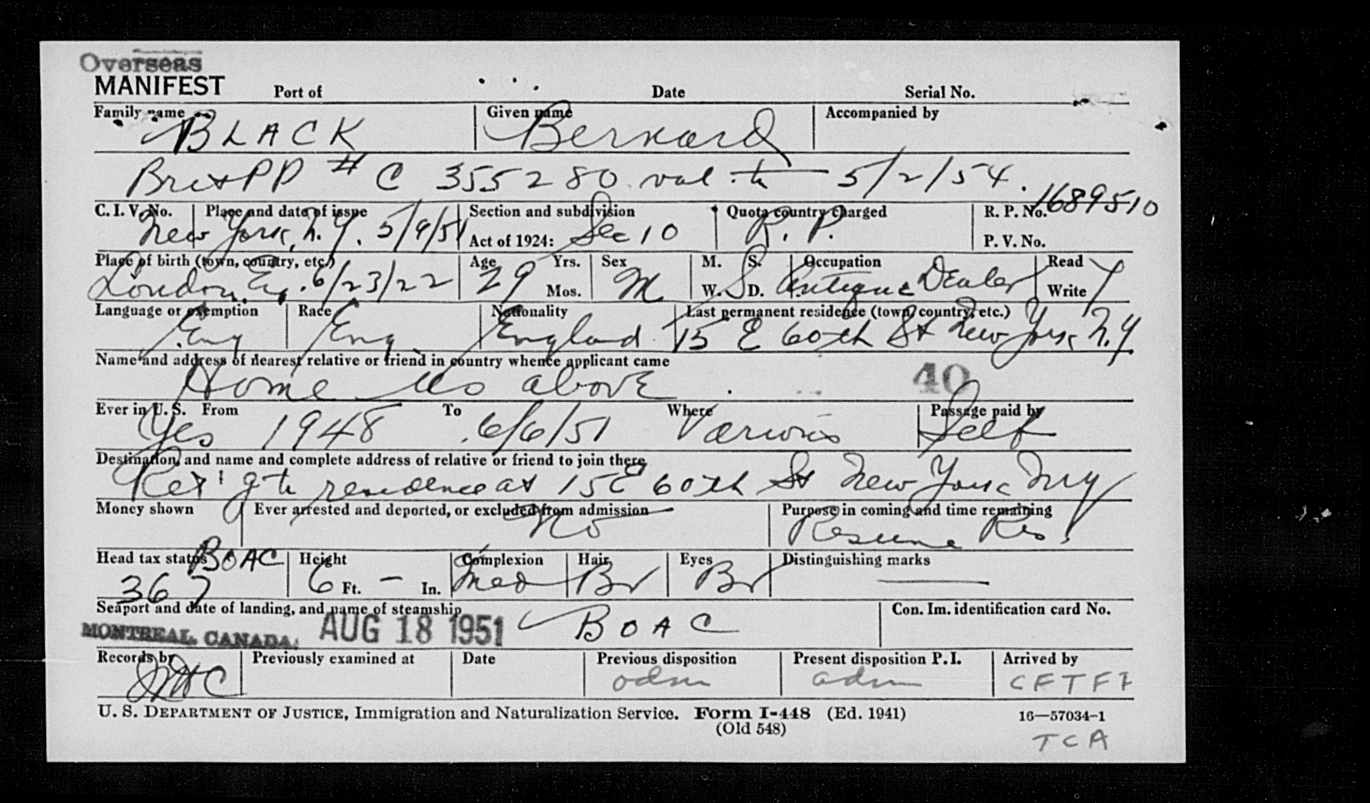 Overseas
MANIFEST Port of Date Serial No.
Family name Given name Accompanied by
BLACK Bernard
Brit PP # C 355280 val. to 5/2/54.
1689510
C. I. V. No. Place and date of issue Section and subdivision Quota country charged R. P. No.
New York, N.Y. 5/9/51 Act of 1924: Sec 10 R. P. P. V. No.
Place of birth (town, country, etc.) Age Yrs. Sex M. S. Occupation Read
London, Eng. 6/23/22 29 Mos. M W. S D. Antique Dealer Write Y
Language or exemption Race Nationality Last permanent residence (town, country, etc.)
Eng Eng England 15 E 60th St New York N.Y
Name and address of nearest relative or friend in country whence applicant came
Home as above 40
Ever in U. S. From To Where Passage paid by
Yes 1948 6/6/51 Various Self
Destination, and name and complete address of relative or friend to join there
Ret'g to residence at 15 E 60th St New York NY
Money shown Ever arrested and deported, or excluded from admission Purpose in coming and time remaining
No Resume Res.
Head tax status BOAC Height Complexion Hair Eyes Distinguishing marks
367 6 Ft. — In. Med Br Br —
Seaport and date of landing, and name of steamship Con. Im. identification card No.
MONTREAL, CANADA. AUG 18 1951 BOAC
Records by Previously examined at Date Previous disposition Present disposition P. I. Arrived by
adm CFTFF
U. S. DEPARTMENT OF JUSTICE, Immigration and Naturalization Service. Form I-448 (Ed. 1941) 16—57034-1
(Old 548)
TCA